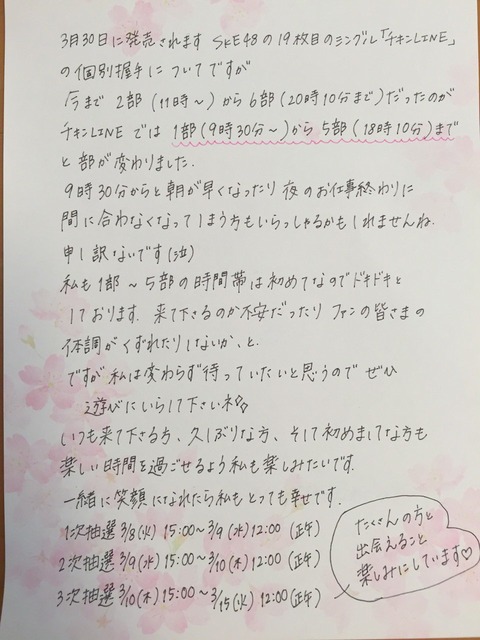 3月30日に発売されます SKE48の19枚目のシングル「チキンLINE」
の個別握手についてですが
今まで 2部(11時〜)から 6部(20時10分まで)だったのが
チキンLINE では 1部(9時30分〜)から 5部(18時10分)まで
と部が変わりました.
9時30分からと朝が早くなったり 夜のお仕事終わりに
間に合わなくなってしまう方もいらっしゃるかもしれませんね.
申し訳ないです(泣)
私も1部〜5部の時間帯は初めてなのでドキドキと
しております. 来て下さるのが不安だったり ファンの皆さまの
体調がくずれたりしないか、と.
ですが 私は変わらず待っていたいと思うので ぜひ
遊びにいらして下さいネ
いつも来て下さる方、久しぶりな方、そして初めましてな方も
楽しい時間を過ごせるよう私も楽しみたいです.
一緒に笑顔になれたら私もとっても幸せです.
1次抽選 3/8(火) 15:00〜3/9(水) 12:00 (正午)
2次抽選 3/9(水) 15:00〜3/10(木) 12:00 (正午)
3次抽選 3/10(木) 15:00〜3/15(火) 12:00 (正午)
たくさんの方と
出会えること
楽しみにしています♡